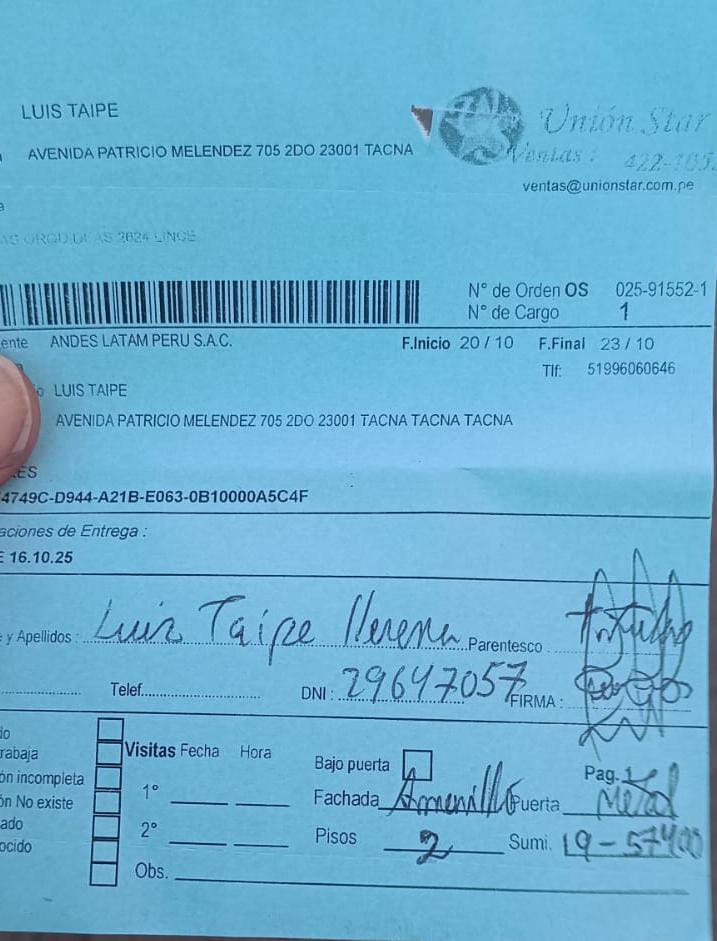 LUIS TAIPE
Unión Star
AVENIDA PATRICIO MELENDEZ 705 2DO 23001 TACNA
Ventas : 422-105
ventas@unionstar.com.pe
2624 LINCE
N° de Orden OS 025-91552-1
N° de Cargo 1
ente ANDES LATAM PERU S.A.C. F.Inicio 20 / 10 F.Final 23 / 10
Tlf: 51996060646
o LUIS TAIPE
AVENIDA PATRICIO MELENDEZ 705 2DO 23001 TACNA TACNA TACNA
ES
4749C-D944-A21B-E063-0B10000A5C4F
aciones de Entrega :
E 16.10.25
e y Apellidos : Luis Taipe Llerena Parentesco
Telef. DNI : 29647057 FIRMA :
do
rabaja Visitas Fecha Hora Bajo puerta Pag. 1
ón incompleta 1° Fachada Amarillo Puerta Metal
ón No existe
ado 2° Pisos 2 Sumi. 19-57400
ocido
Obs.